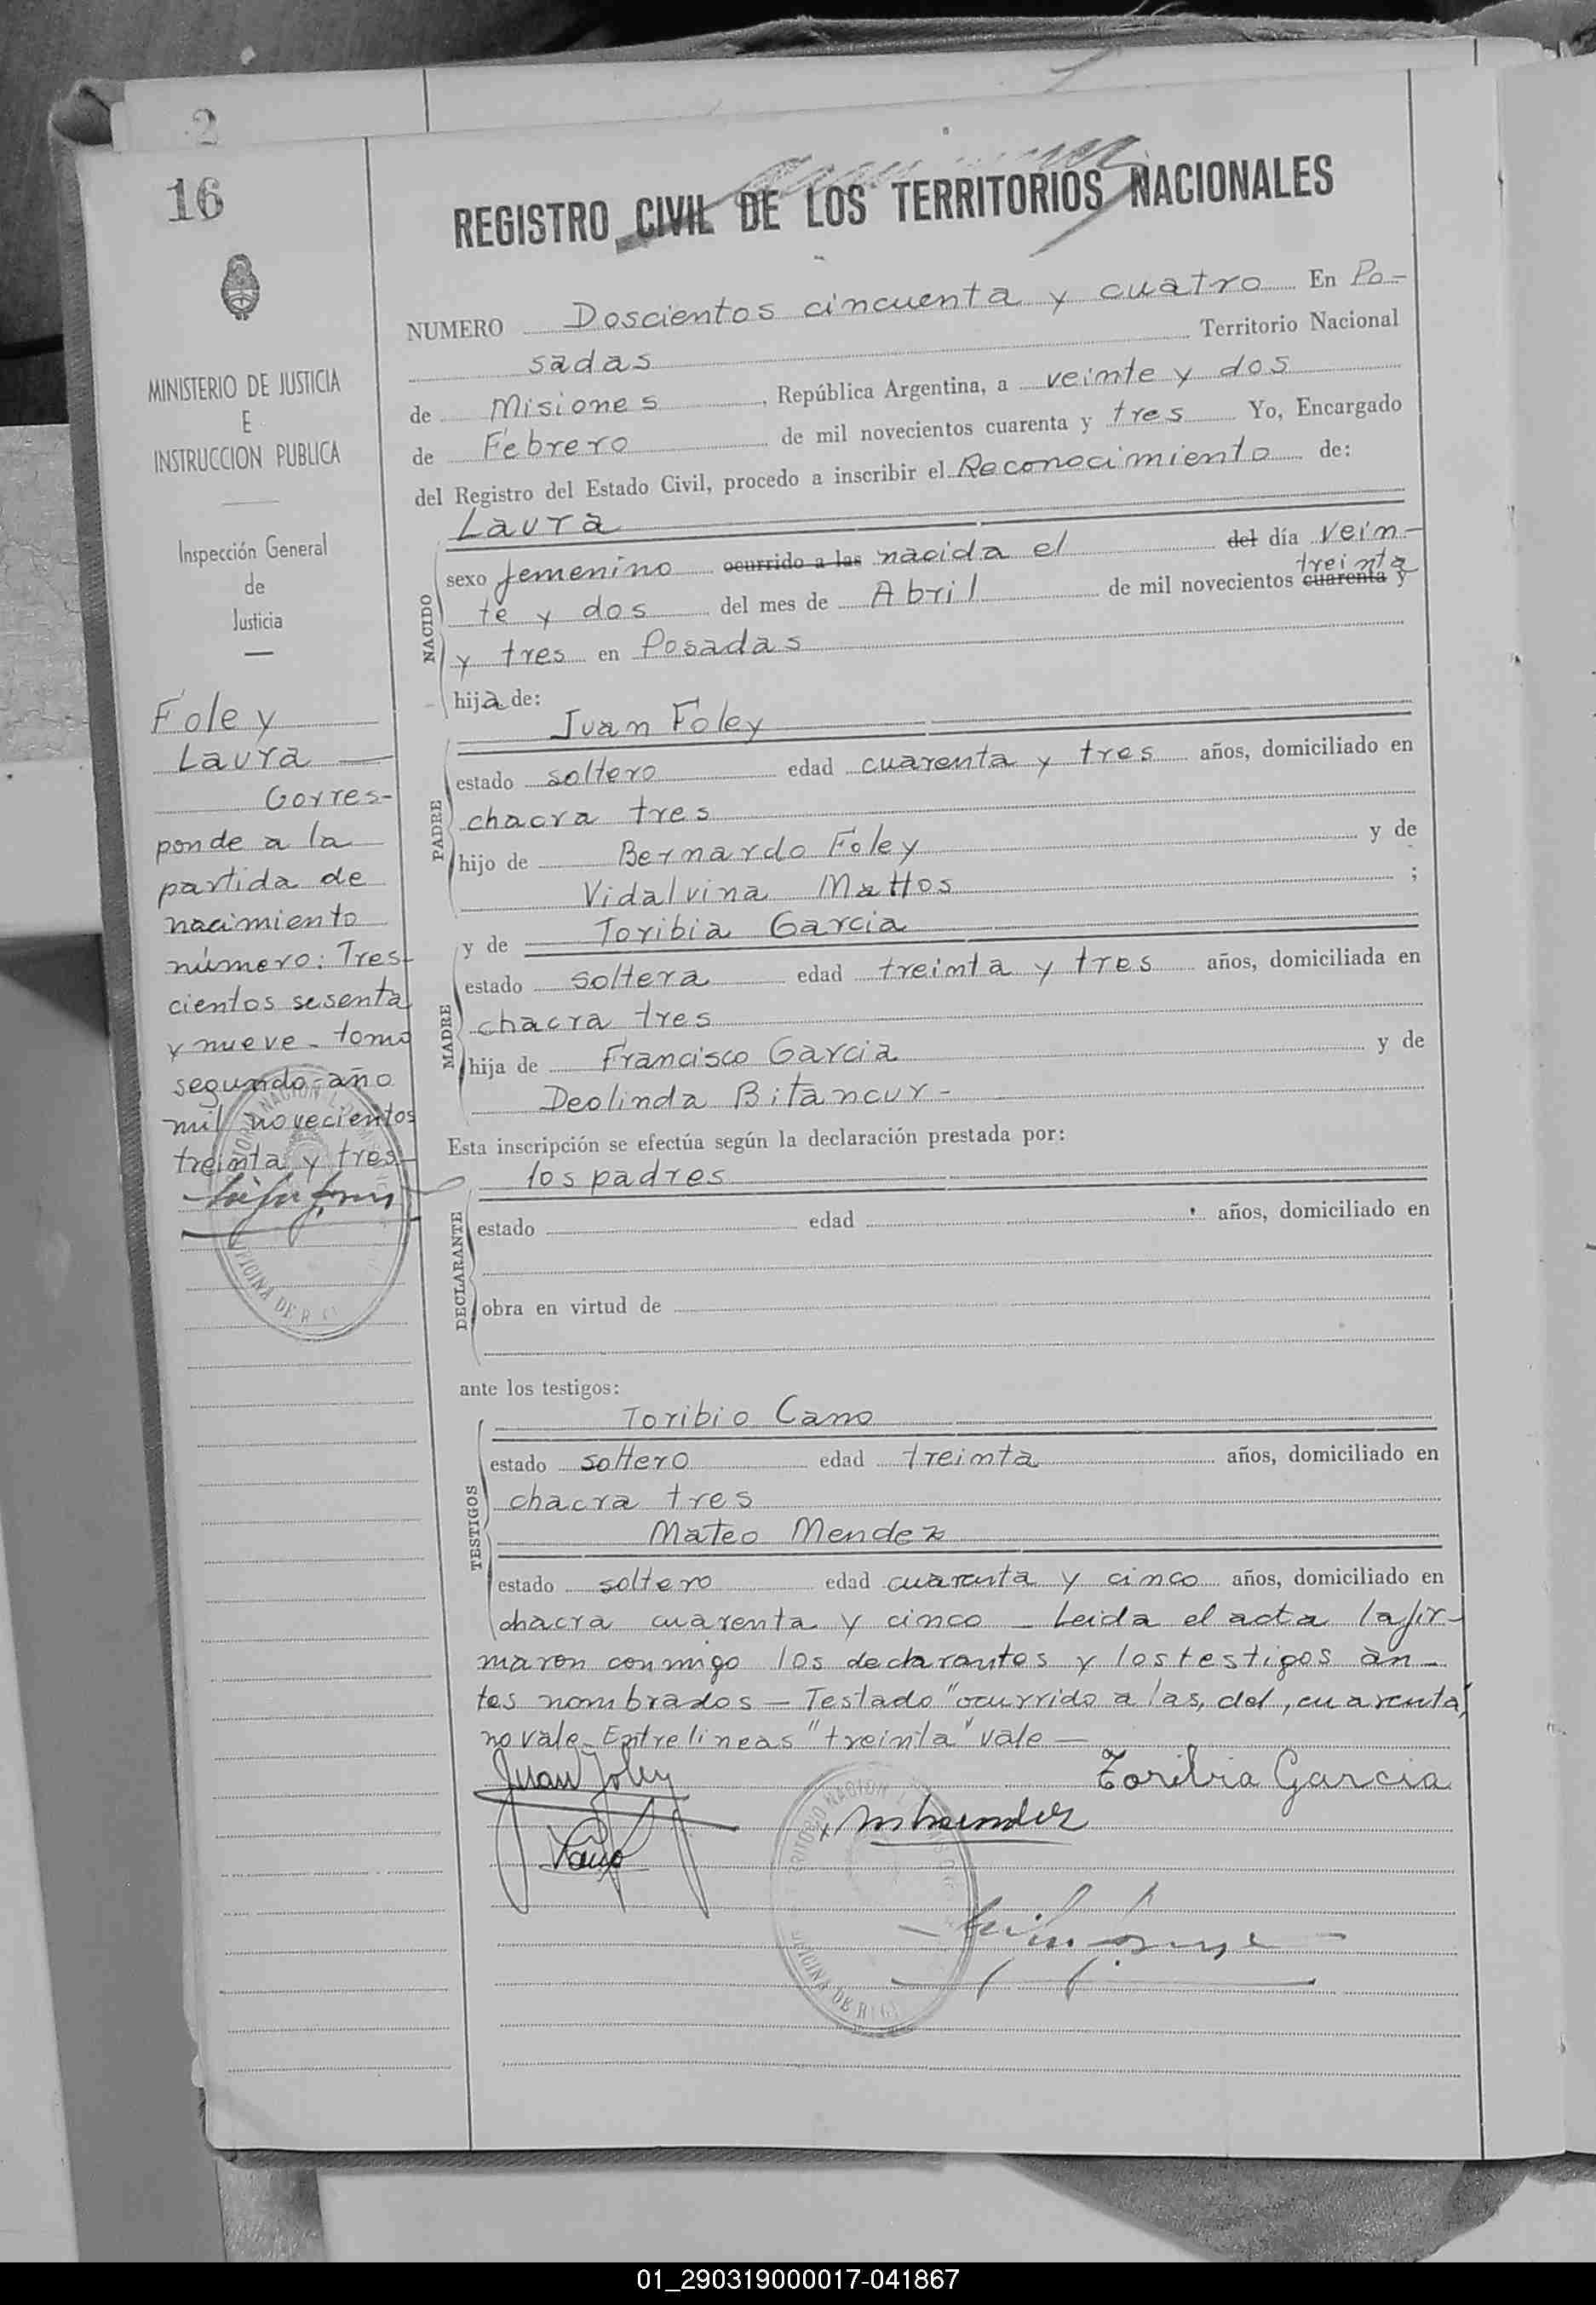 2
16
REGISTRO CIVIL DE LOS TERRITORIOS NACIONALES
NUMERO Doscientos cincuenta y cuatro En Po-
sadas Territorio Nacional
de Misiones, República Argentina, a veinte y dos
de Febrero de mil novecientos cuarenta y tres Yo, Encargado
del Registro del Estado Civil, procedo a inscribir el Reconocimiento de:
Laura
NACIDO
sexo femenino ocurrido a las nacida el del día vein-
treinta
te y dos del mes de Abril de mil novecientos cuarenta y
y tres en Posadas
hija de:
Juan Foley
PADRE
estado soltero edad cuarenta y tres años, domiciliado en
chacra tres
hijo de Bernardo Foley y de
Vidalvina Mattos ;
MADRE
y de Toribia Garcia
estado soltera edad treinta y tres años, domiciliada en
chacra tres
hija de Francisco Garcia y de
Deolinda Bitancur -
Esta inscripción se efectúa según la declaración prestada por:
los padres
DECLARANTE
estado edad años, domiciliado en
obra en virtud de
ante los testigos:
TESTIGOS
Toribio Cano
estado soltero edad treinta años, domiciliado en
chacra tres
Mateo Mendez
estado soltero edad cuarenta y cinco años, domiciliado en
chacra cuarenta y cinco - Leida el acta la fir-
maron conmigo los declarantes y los testigos an-
tes nombrados - Testado "ocurrido a las, del, cuarenta",
no vale - Entrelineas "treinta" vale -
Juan Foley
Toribia Garcia
Cano
MINISTERIO DE JUSTICIA
E
INSTRUCCION PUBLICA
Inspección General
de
Justicia
Foley
Laura
Corres-
ponde a la
partida de
nacimiento
número: Tres-
cientos sesenta
y nueve - tomo
segundo - año
mil novecientos
treinta y tres -
OFICINA DE
01_290319000017-041867